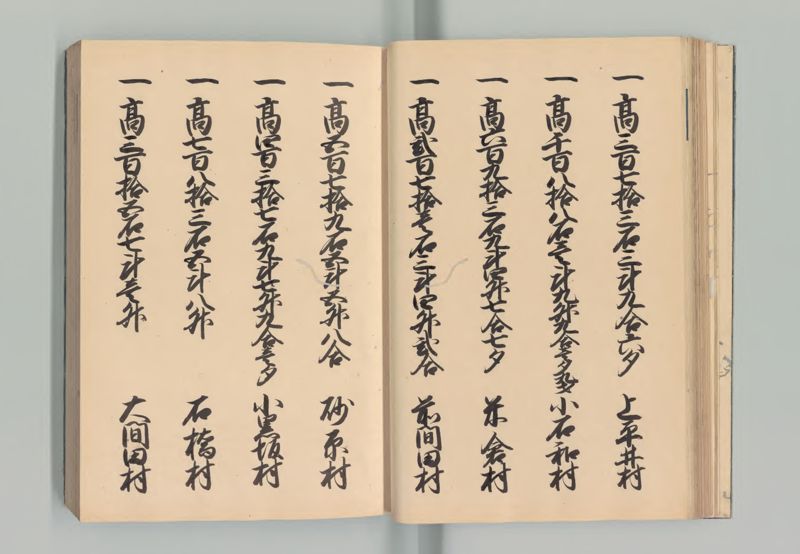 一 高三百七拾三石三斗九合六夕 上平井村
一 高千百八拾八石壱斗九升九合壱夕 小石和村
一 高六百九拾三石九斗四升七合七夕 米倉村
一 高弐百七拾壱石三斗四升弐合 前間田村
一 高五百七拾九石五斗五升八合 砂原村
一 高四百三拾七石九斗七升九合壱夕 小黒坂村
一 高七百八拾三石五斗八升 石橋村
一 高三百拾五石七斗壱升 大間田村